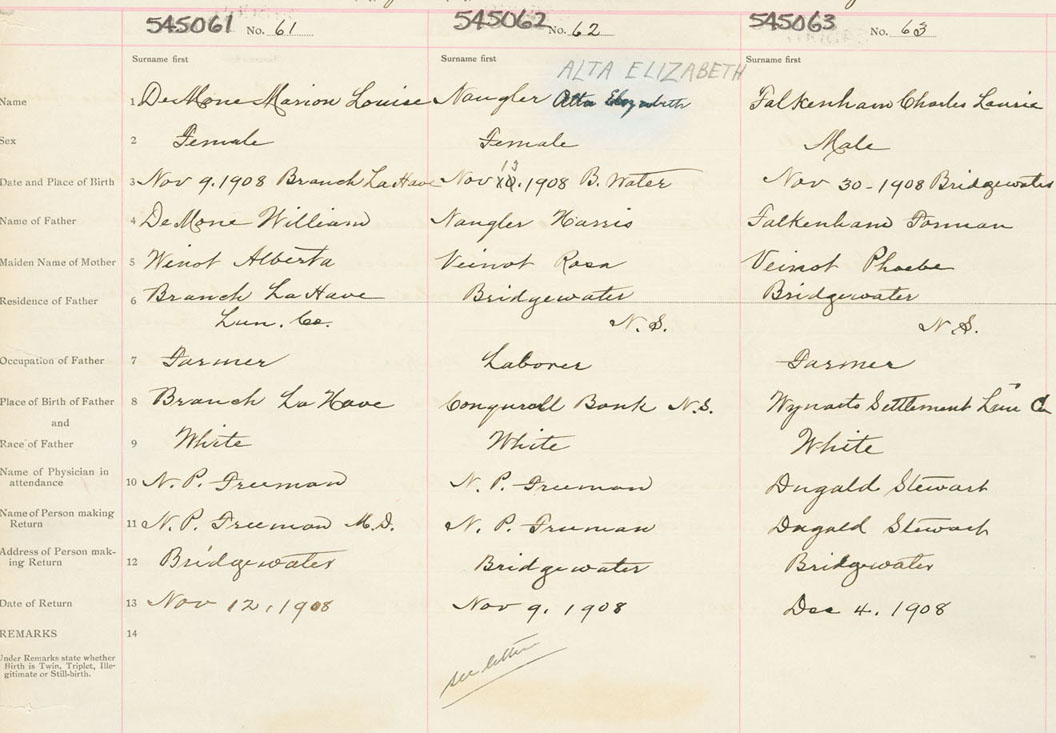 545061 No. 61 545062 No. 62 545063 No. 63
Surname first Surname first ALTA ELIZABETH Surname first
Name 1 DeMone Marion Louise Naugler Alta Elizabeth Falkenham Charles Laurie
Sex 2 Female Female Male
Date and Place of Birth 3 Nov 9. 1908 Branch LaHave Nov 13 1908 B. Water Nov 30 - 1908 Bridgewater
Name of Father 4 DeMone William Naugler Harris Falkenham Forman
Maiden Name of Mother 5 Winot Alberta Veinot Rosa Veinot Phoebe
Residence of Father 6 Branch LaHave Bridgewater Bridgewater
Lun. Co. N.S. N.S.
Occupation of Father 7 Farmer Laborer Farmer
Place of Birth of Father 8 Branch LaHave Conquerall Bank N.S. Wynacts Settlement Lun Co
and
Race of Father 9 White White White
Name of Physician in
attendance 10 N. P. Freeman N. P. Freeman Dugald Stewart
Name of Person making
Return 11 N. P. Freeman M.D. N. P. Freeman Dugald Stewart
Address of Person mak-
ing Return 12 Bridgewater Bridgewater Bridgewater
Date of Return 13 Nov 12, 1908 Nov 9. 1908 Dec 4. 1908
REMARKS 14
Under Remarks state whether
Birth is Twin, Triplet, Ille-
gitimate or Still-birth.
see letter